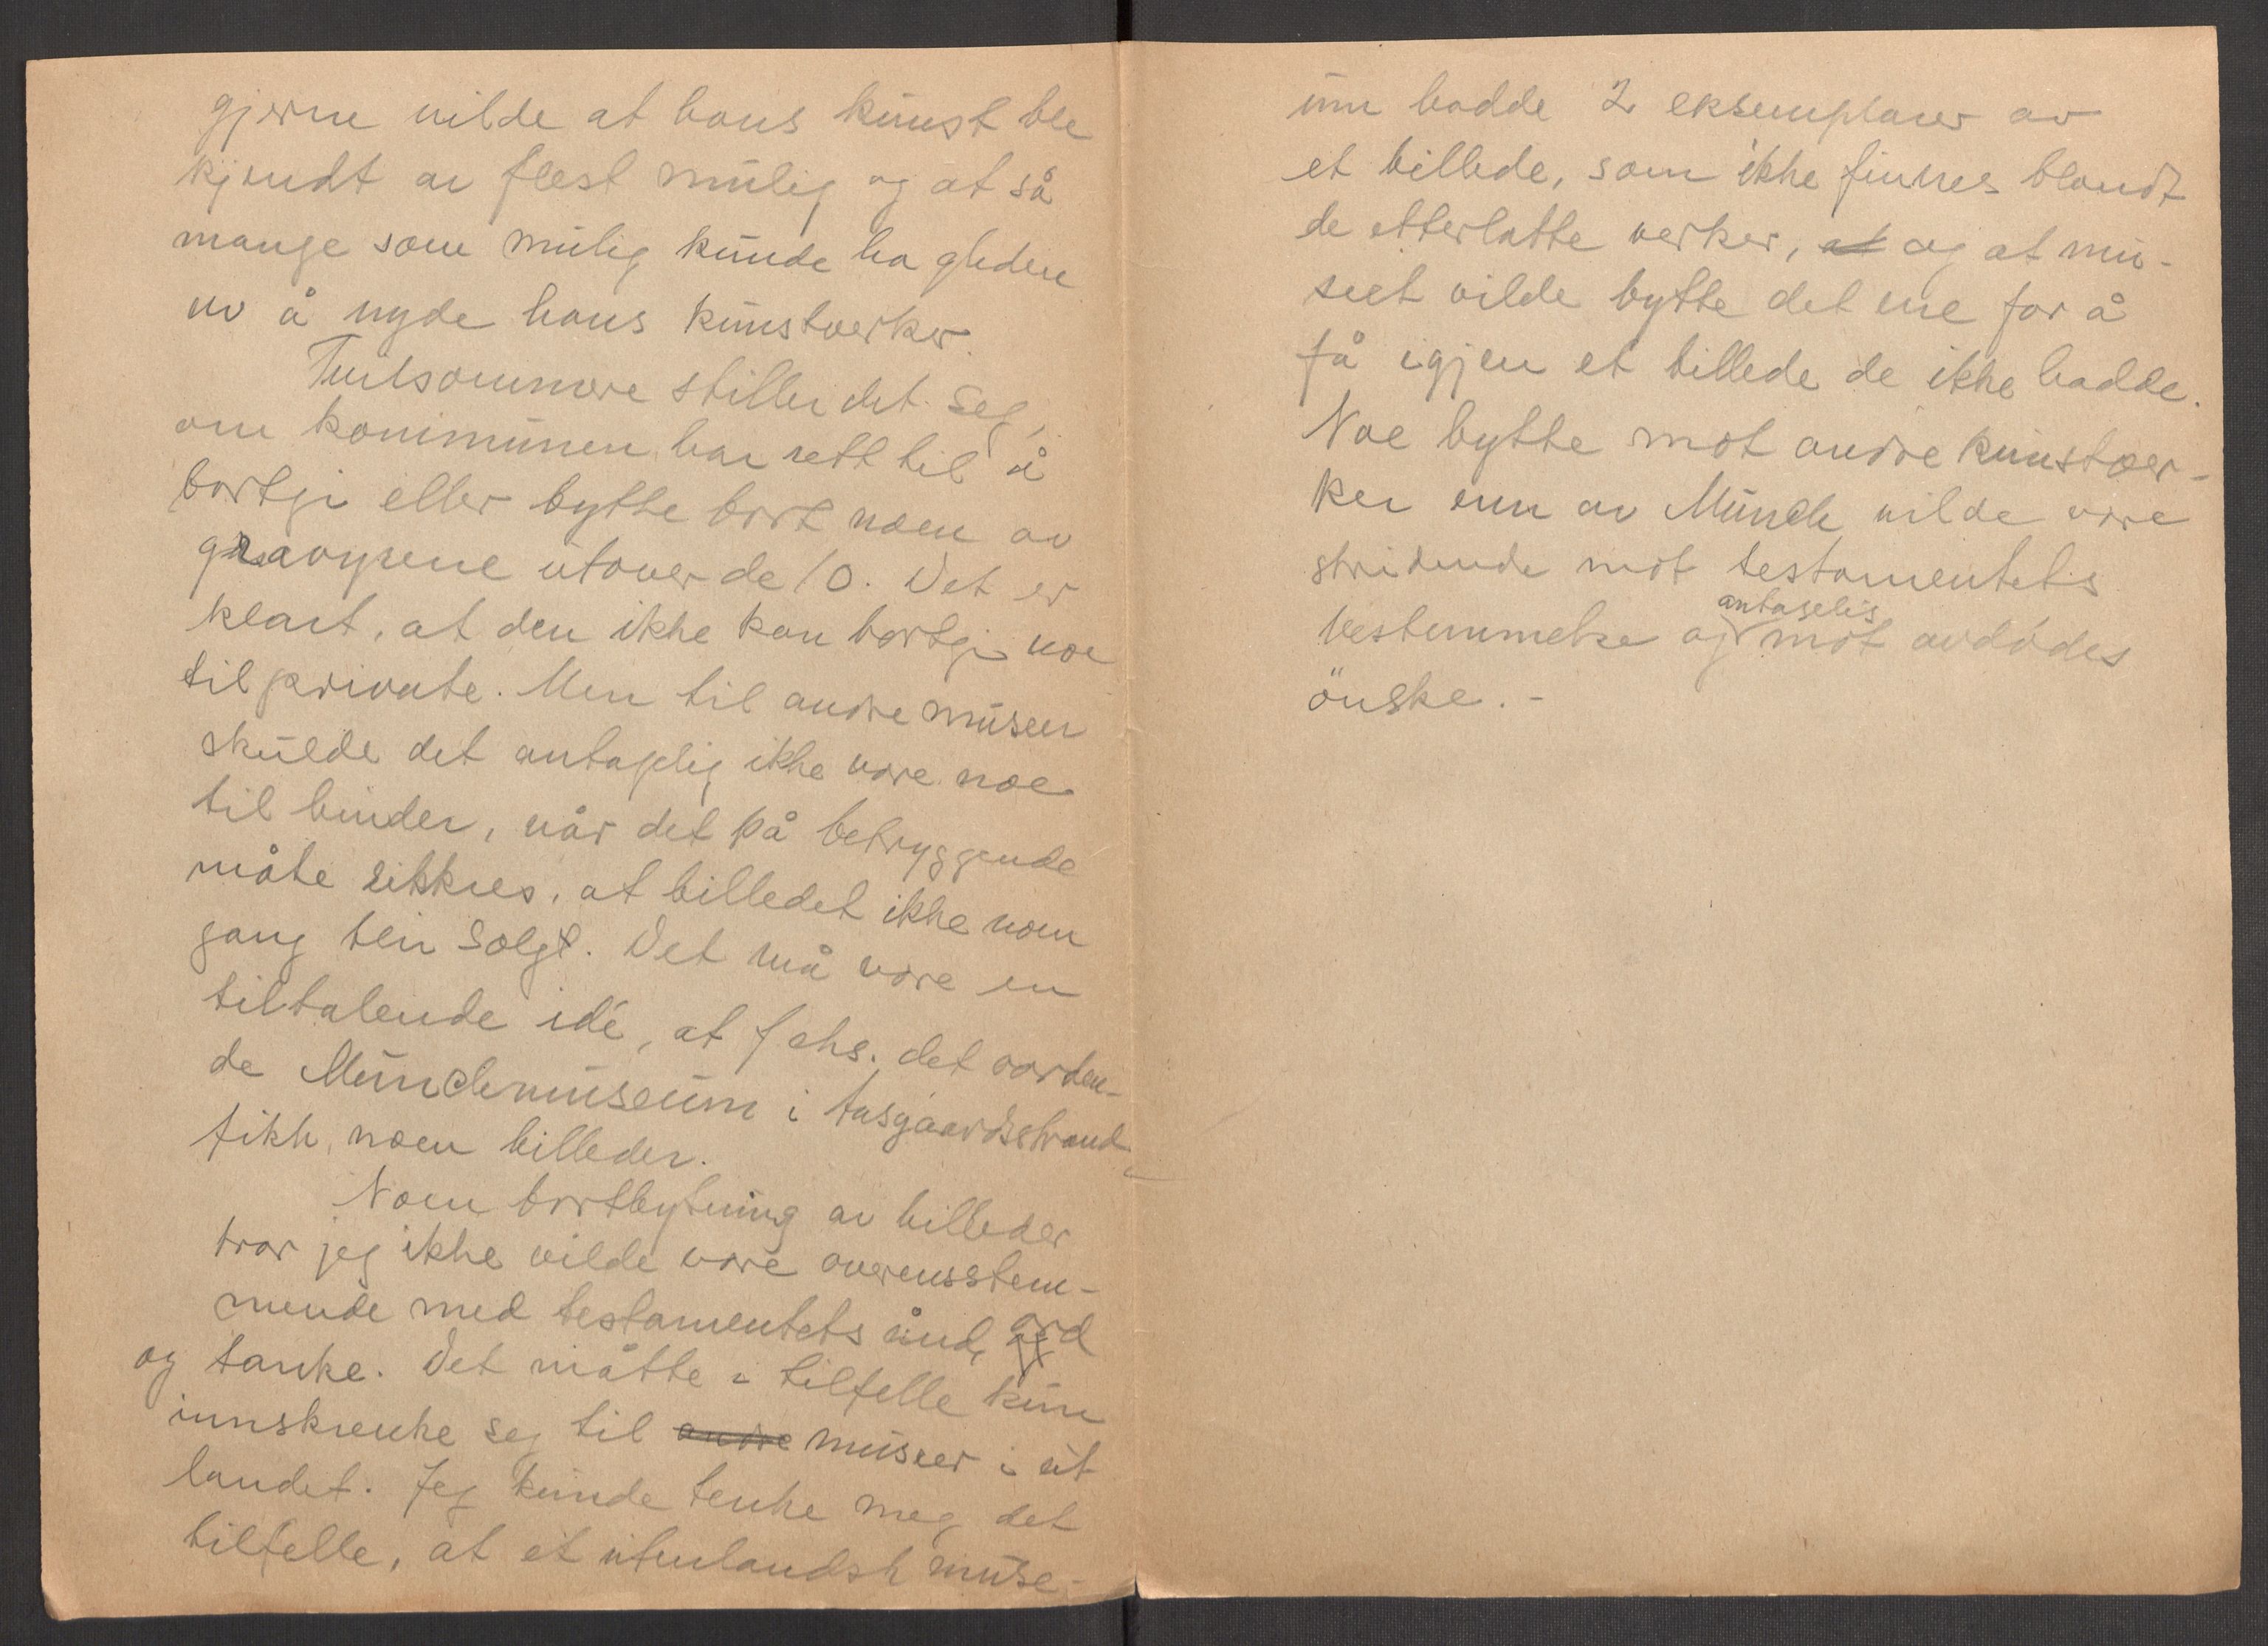 gjerne vilde at hans kunst ble
kjendt av flest mulig og at så
mange som mulig kunde ha gleden
av å nyde hans kunstverker.
Tvilsommere stiller det seg,
om kommunen har rett til å
bortgi eller bytte bort noen av
gravyrene utover de 10. Det er
klart, at den ikke kan bortgi noe
til private. Men til andre museer
skulde det antagelig ikke være noe
til hinder, når det på betryggende
måte sikkres, at billedet ikke noen
gang blir solgt. Det må være en
tiltalende idé, at f eks. det vorden-
de Münchmuseum i Aasgaardsstrand
fikk noen billeder.
Noen bortbytning av billeder
tror jeg ikke vilde være overensstem-
mende med testamentets ånd, ord
og tanke. Det måtte i tilfelle kun
innskrenke seg til andre museer i ut
landet. Jeg kunde tenke meg det
tilfelle, at et utenlandsk muse-
um hadde 2 eksemplarer av
et billede, som ikke finnes blandt
de etterlatte verker, at og at mu-
seet vilde bytte det ene for å
få igjen et billede de ikke hadde.
Noe bytte mot andre kunstver-
ker enn av Münch vilde være
stridende mot testamentets
bestemmelse og antagelig mot avdødes
önske. -